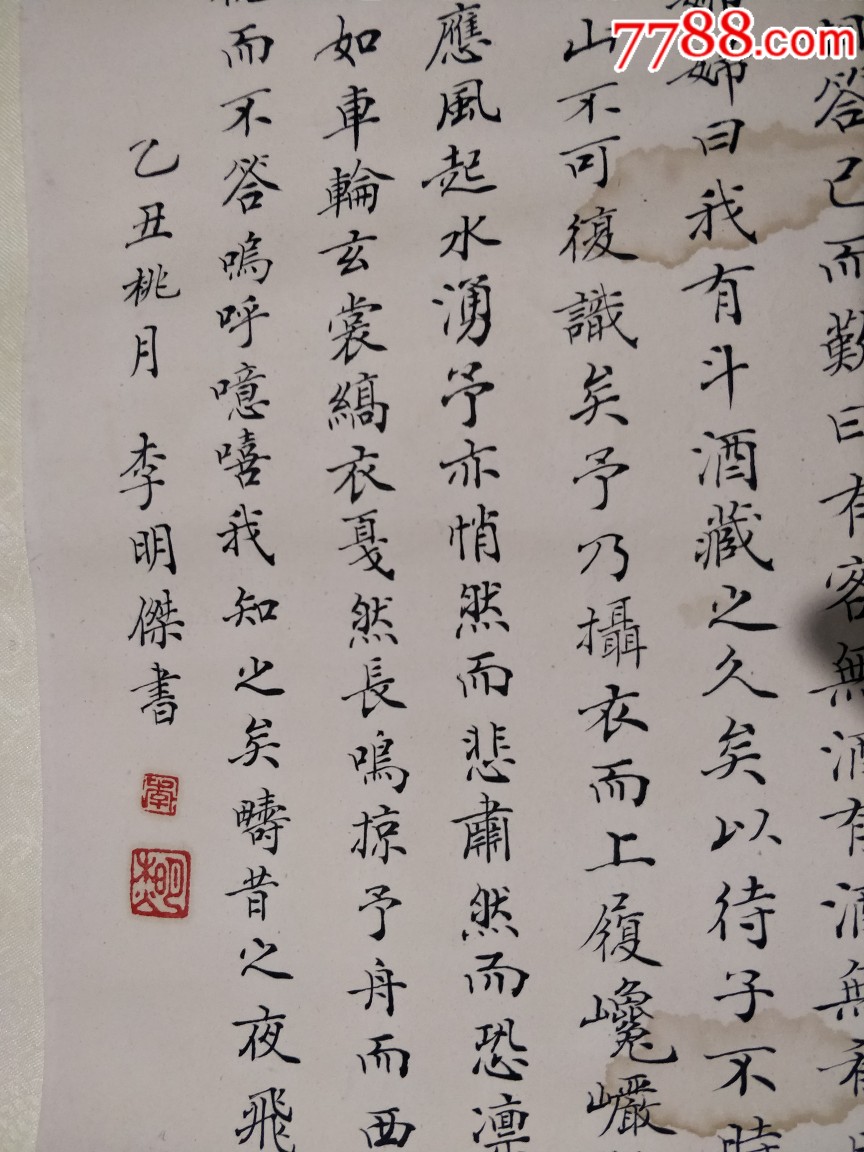 7788.com
答已而歎曰有客無酒有酒無肴
婦曰我有斗酒藏之久矣以待子不時
山不可復識矣予乃攝衣而上履巉巖
應風起水湧予亦悄然而悲肅然而恐凛
如車輪玄裳縞衣戛然長鳴掠予舟而西
而不答嗚呼噫嘻我知之矣疇昔之夜飛
乙丑桃月 李明傑書